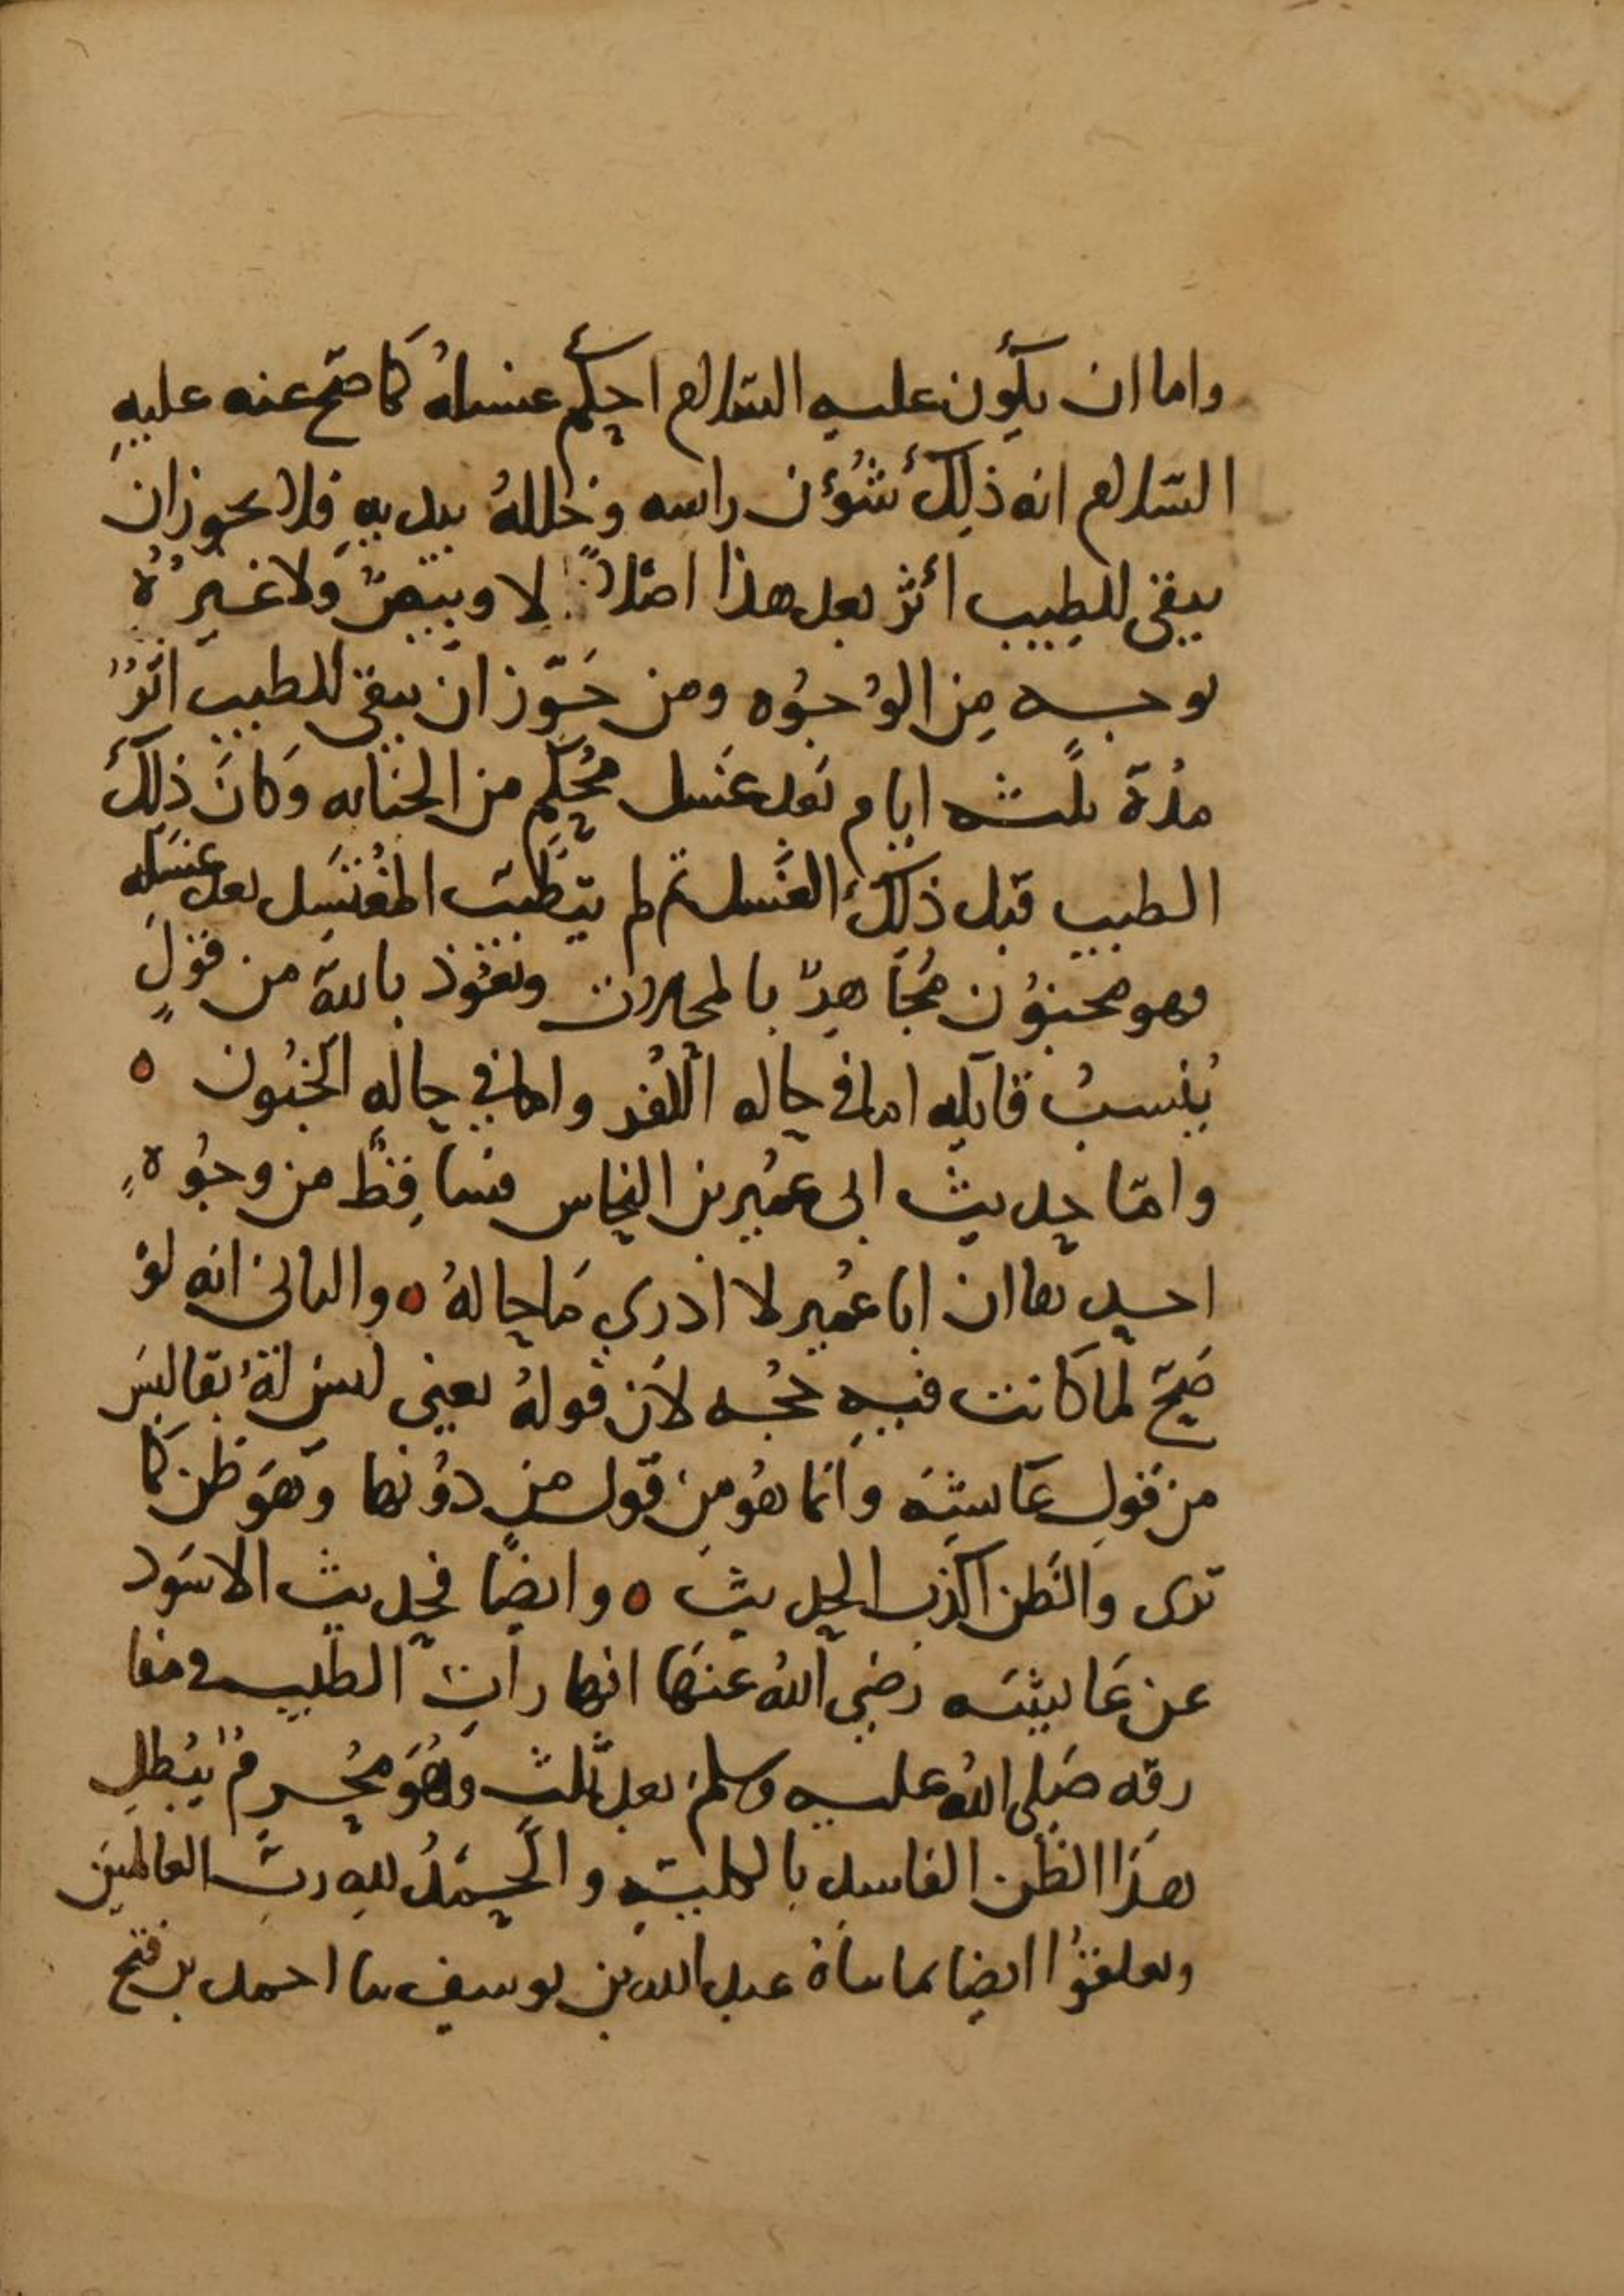 واما ان يكون عليه السلام احكم غسله كما صح عنه عليه
السلام انه ذلك شؤن راسه وخلله بيديه فلا يجوز ان
يبقى للطيب أثر بعد هذا اصلا لا وبيص ولا غيره
بوجه من الوجوه ومن جوز ان يبقى للطيب اثر
مدة ثلثه ايام بعد غسل محكم من الجنابه وكان ذلك
الطيب قبل ذلك الغسل ثم لم يتطيب المغتسل بعد غسله
وهو مجنون مجاهد بالمحالات ونعوذ بالله من قول
ينسب قايله اما في حاله الكفر واما في حاله الجنون ٥
واما حديث ابى عمير بن النحاس فساقط من وجوه
احدها ان ابا عمير لا ادري ما حاله ٥ والثانى انه لو
صح لما كانت فيه حجه لان قوله يعنى ليس له بقا ليس
من قول عايشه وانما هو من قول من دونها وهو ظن كما
ترى والظن اكذب الحديث ٥ وايضا فحديث الاسود
عن عايشه رضي الله عنها انها رات الطيب في مفا
رقه صلى الله عليه وسلم بعد ثلث وهو محرم يبطل
هذا الظن الفاسد بالكليه والحمد لله رب العالمين
وتعلقوا ايضا بما ناه عبد الله بن يوسف نا احمد بن فتح